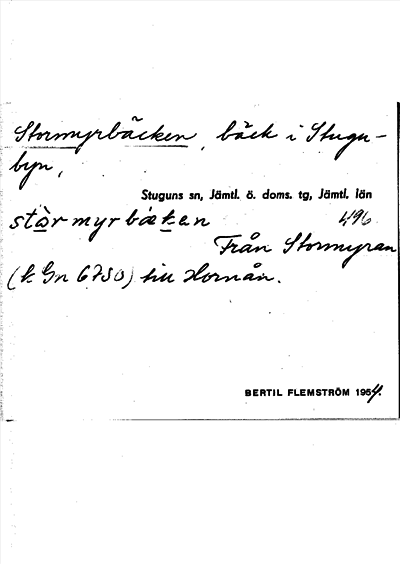 Stormyrbäcken, bäck i Stugu-
byn,
Stuguns sn, Jämtl. ö. doms. tg, Jämtl. län
stòrmyrbäken 496
Från Stormyran
(k Gn 6780) till Hornån.
BERTIL FLEMSTRÖM 1954.